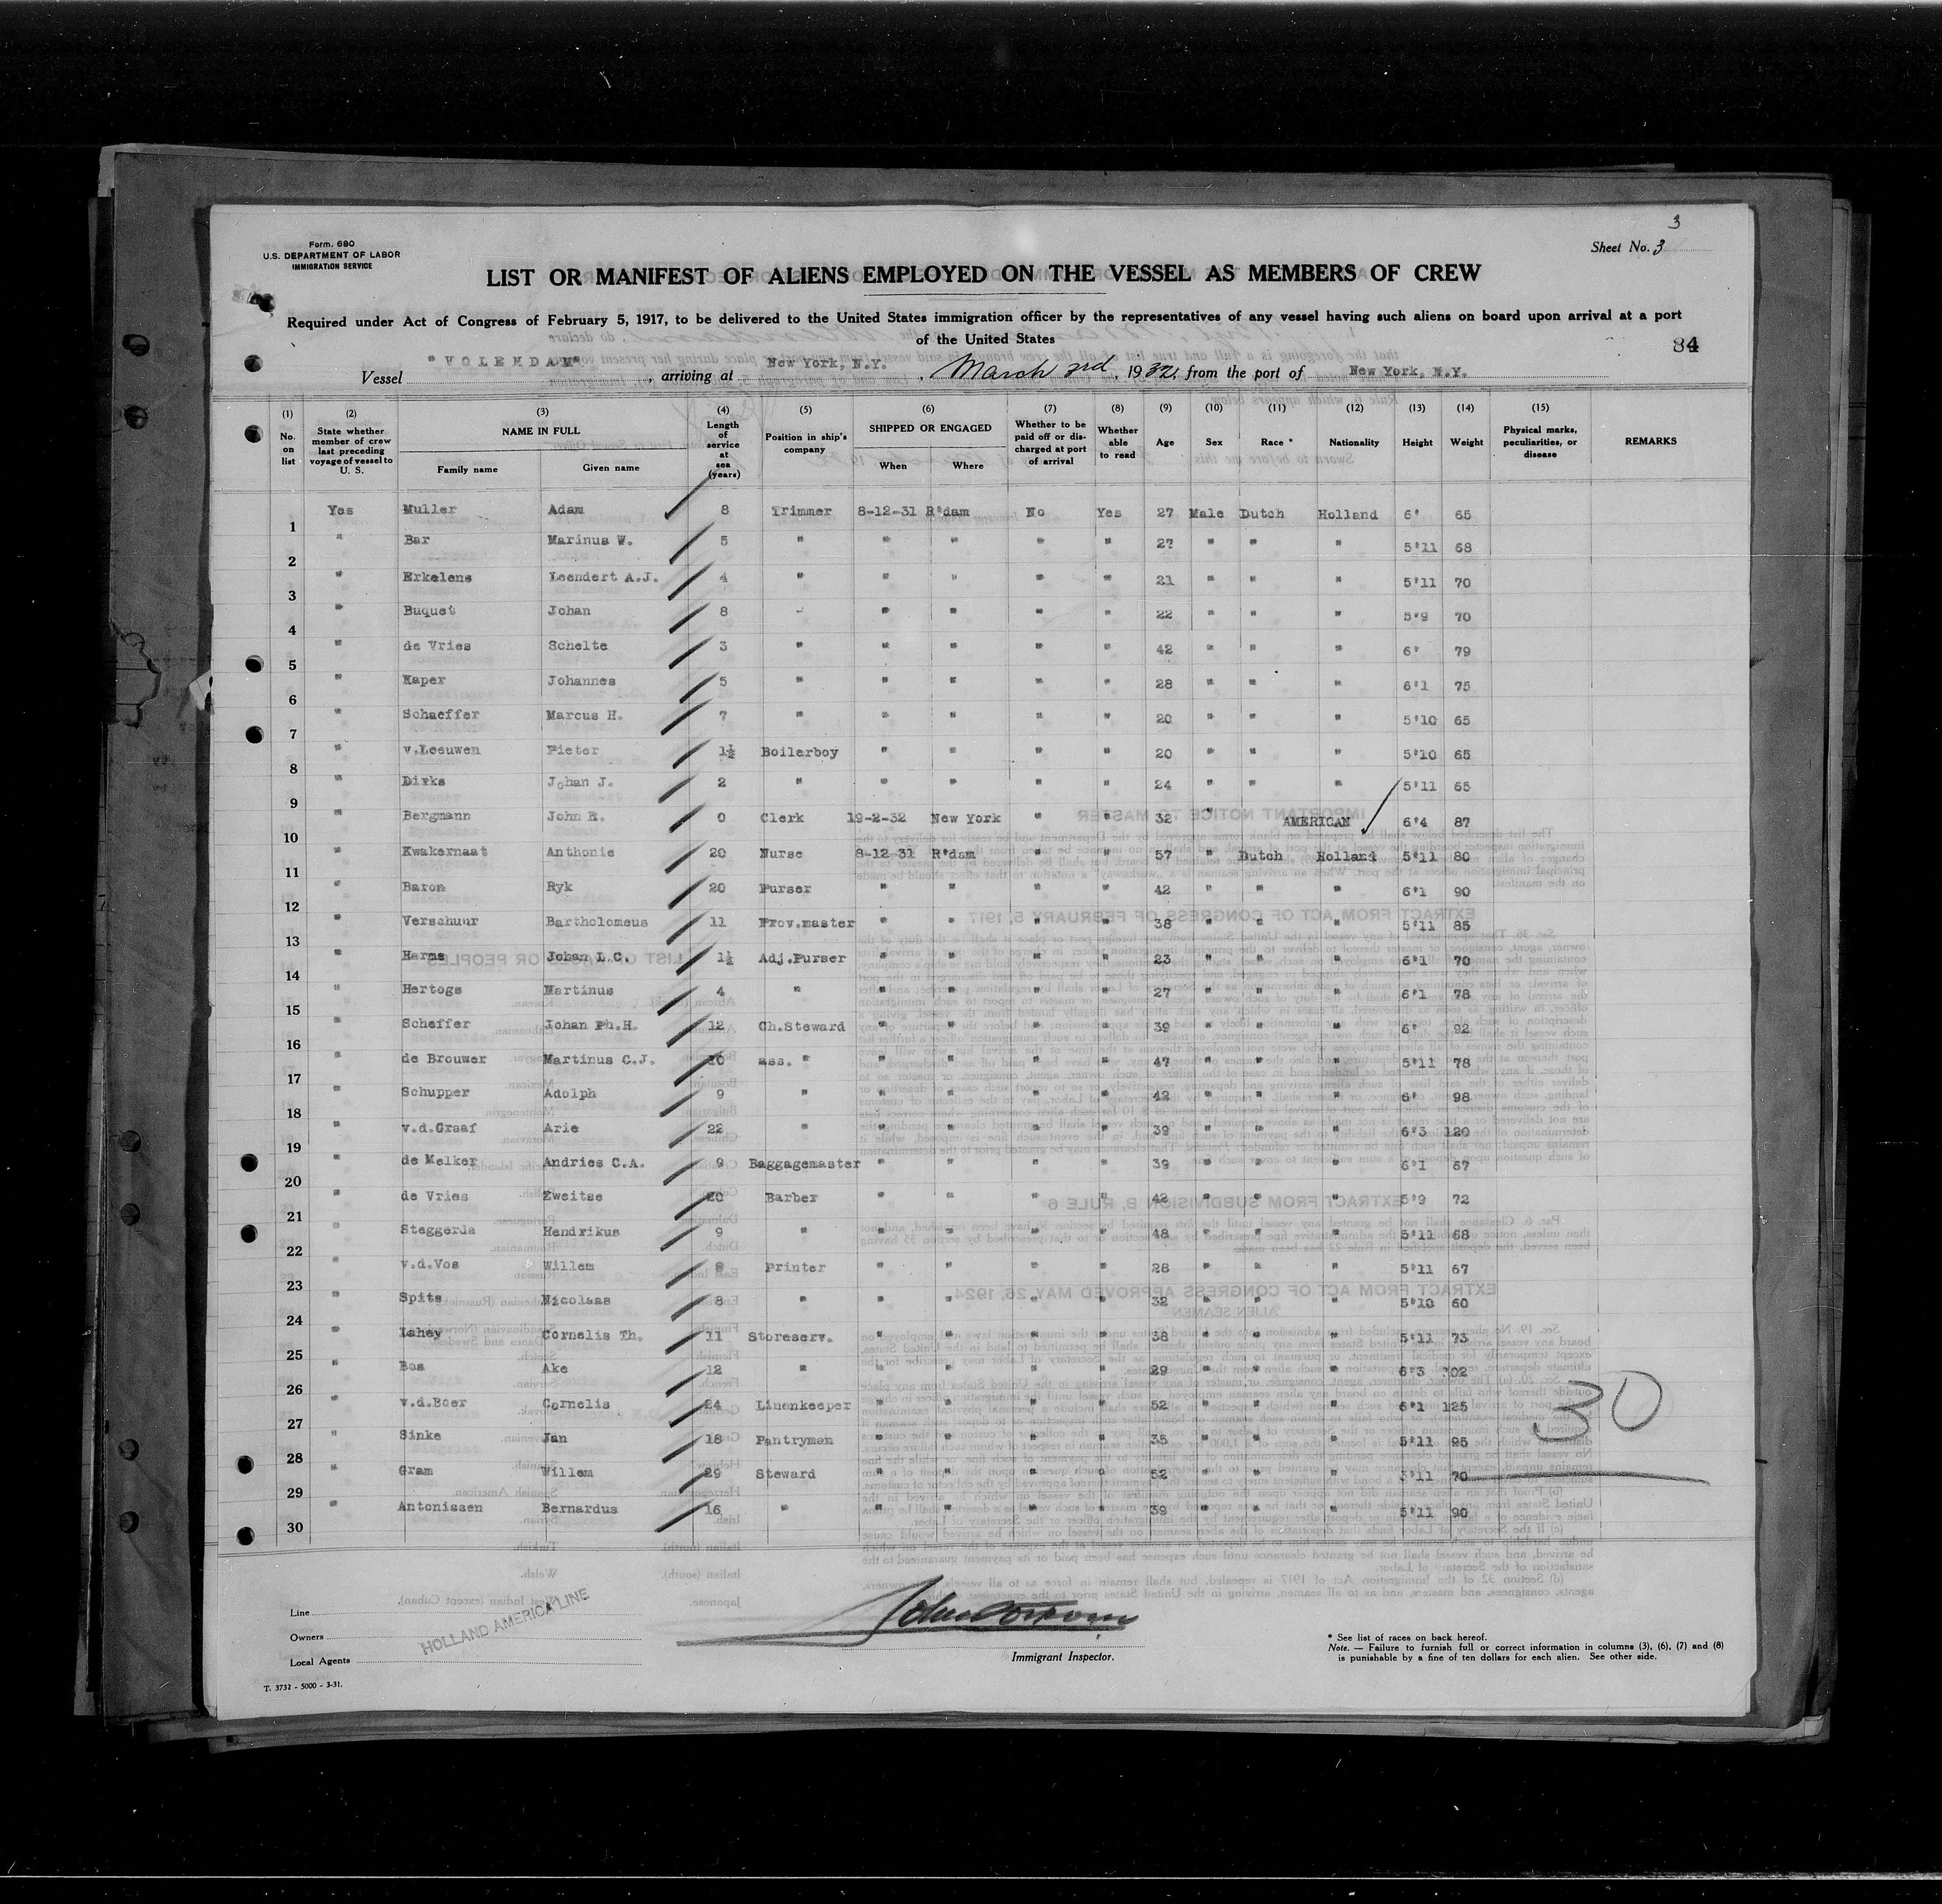 3
Form. 680
U.S. DEPARTMENT OF LABOR
IMMIGRATION SERVICE
Sheet No. 3
LIST OR MANIFEST OF ALIENS EMPLOYED ON THE VESSEL AS MEMBERS OF CREW
Required under Act of Congress of February 5, 1917, to be delivered to the United States immigration officer by the representatives of any vessel having such aliens on board upon arrival at a port
of the United States
84
Vessel "VOLENDAM", arriving at New York, N.Y., March 3rd, 1932, from the port of New York, N.Y.
(1) No. on list (2) State whether member of crew last preceding voyage of vessel to U. S. (3) NAME IN FULL Family name Given name (4) Length of service at sea (years) (5) Position in ship's company (6) SHIPPED OR ENGAGED When Where (7) Whether to be paid off or discharged at port of arrival (8) Whether able to read (9) Age (10) Sex (11) Race * (12) Nationality (13) Height (14) Weight (15) Physical marks, peculiarities, or disease REMARKS
1 Yes Muller Adam 8 Trimmer 8-12-31 R'dam No Yes 27 Male Dutch Holland 6' 65
2 " Bar Marinus W. 5 " " " " " 27 " " " 5'11 68
3 " Erkelens Leendert A.J. 4 " " " " " 21 " " " 5'11 70
4 " Buquet Johan 8 " " " " " 22 " " " 5'9 70
5 " de Vries Schelte 3 " " " " " 42 " " " 6' 79
6 " Kaper Johannes 5 " " " " " 28 " " " 6'1 75
7 " Schaeffer Marcus H. 7 " " " " " 20 " " " 5'10 65
8 " v.Leeuwen Pieter 1½ Boilerboy " " " " 20 " " " 5'10 65
9 " Dirks Johan J. 2 " " " " " 24 " " " 5'11 65
10 " Bergmann John 0 Clerk 19-2-32 New York " " 32 " AMERICAN 6'4 87
11 " Kwakernaat Anthonie 20 Nurse 8-12-31 R'dam " " 57 " Dutch Holland 5'11 80
12 " Baron Ryk 20 Purser " " " " 42 " " " 6'1 90
13 " Verschuur Bartholomeus 11 Prov.master " " " " 38 " " " 5'11 85
14 " Harms Johan L.C. 1½ Adj.Purser " " " " 23 " " " 6'1 70
15 " Hertogs Martinus 4 " " " " " 27 " " " 6'1 78
16 " Scheffer Johan Ph.H. 12 Ch.Steward " " " " 39 " " " 6' 92
17 " de Brouwer Martinus C.J. 10 ass. " " " " " 47 " " " 5'11 78
18 " Schupper Adolph 9 " " " " " 42 " " " 6' 98
19 " v.d.Graaf Arie 22 " " " " " 39 " " " 6'3 120
20 " de Melker Andries C.A. 9 Baggagemaster " " " " 39 " " " 6'1 67
21 " de Vries Zweitse 20 Barber " " " " 42 " " " 5'9 72
22 " Steggerda Hendrikus 9 " " " " " 48 " " " 5'11 68
23 " v.d.Vos Willem 8 Printer " " " " 28 " " " 5'11 67
24 " Spits Nicolaas 8 " " " " " 32 " " " 5'10 60
25 " Lahey Cornelis Th. 11 Storeserv. " " " " 38 " " " 5'11 73
26 " Bos Ake 12 " " " " " 29 " " " 6'3 102
27 " v.d.Boer Cornelis 24 Linenkeeper " " " " 52 " " " 6'1 125
28 " Sinke Jan 18 Pantrymen " " " " 35 " " " 5'11 95
29 " Gram Willem 29 Steward " " " " 52 " " " 5'11 70
30 " Antonissen Bernardus 16 " " " " " 39 " " " 5'11 90
30
Line
Owners
Local Agents
HOLLAND AMERICA LINE
Immigrant Inspector.
* See list of races on back hereof.
Note. — Failure to furnish full or correct information in columns (3), (6), (7) and (8)
is punishable by a fine of ten dollars for each alien. See other side.
T. 3732 - 5000 - 3-31.